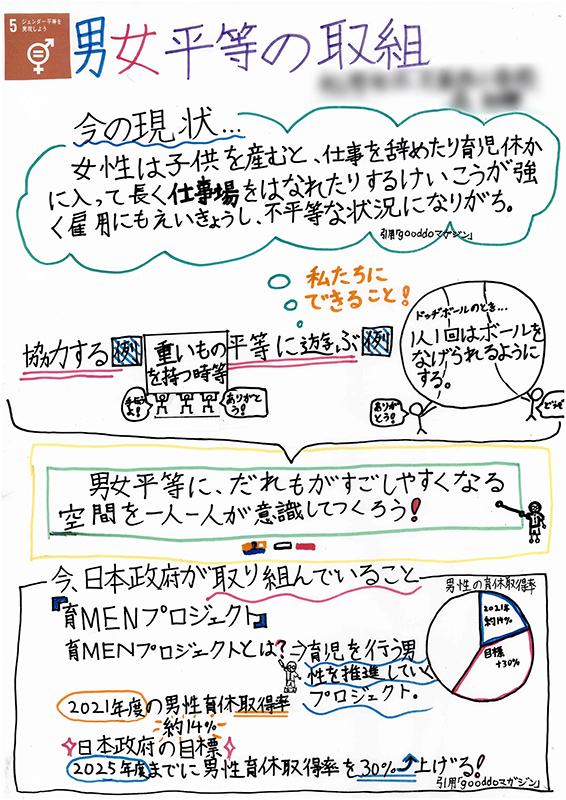 5 ジェンダー平等を
実現しよう
男女平等の取組
今の現状…
女性は子供を産むと、仕事を辞めたり育児休か
に入って長く仕事場をはなれたりするけいこうが強
く雇用にもえいきょうし、不平等な状況になりがち。
引用「gooddoマガジン」
私たちに
できること！
協力する
例
重いもの
を持つ時等
手伝う
よ！
ありがと
う！
平等に遊ぶ
例
ドッヂボールのとき…
1人1回はボールを
なげられるようにする。
ありが
とう！
どうぞ
男女平等に、だれもがすごしやすくなる
空間を一人一人が意識してつくろう！
今、日本政府が取り組んでいること
『育MENプロジェクト』
育MENプロジェクトとは？⇒育児を行う男
性を推進していく
プロジェクト。
男性の育休取得率
2021年
約14%
目標
+30%
2021年度の男性育休取得率
約14%
日本政府の目標
2025年度までに男性育休取得率を30%上げる！
引用「gooddoマガジン」